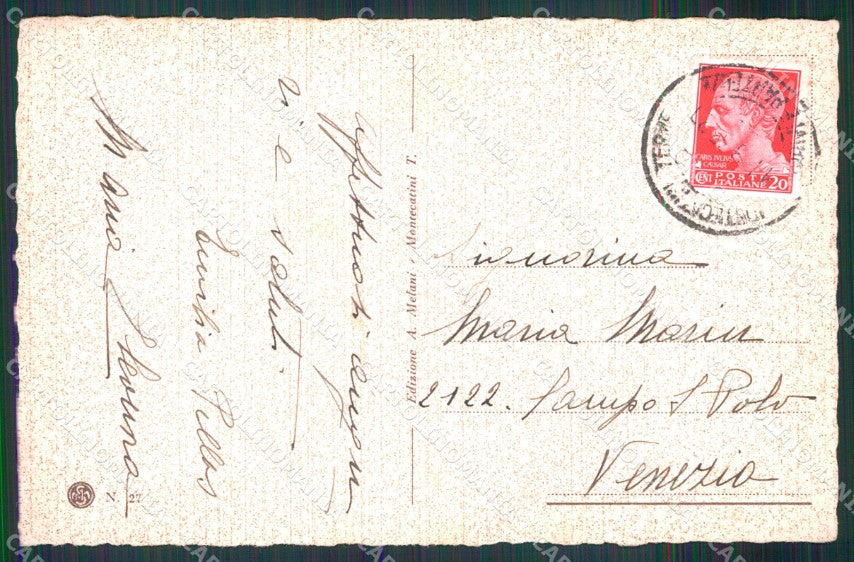 affettuosi auguri
e saluti
Emilia
Maria
Edizione A. Melani - Montecatini T.
N. 27
CAIVS IVLIVS
CAESAR
CENT POSTE
ITALIANE 20
MONTECATINI TERME
Signorina
Maria Marin
2122. Campo S Polo
Venezia
CARTOLINOMANIA